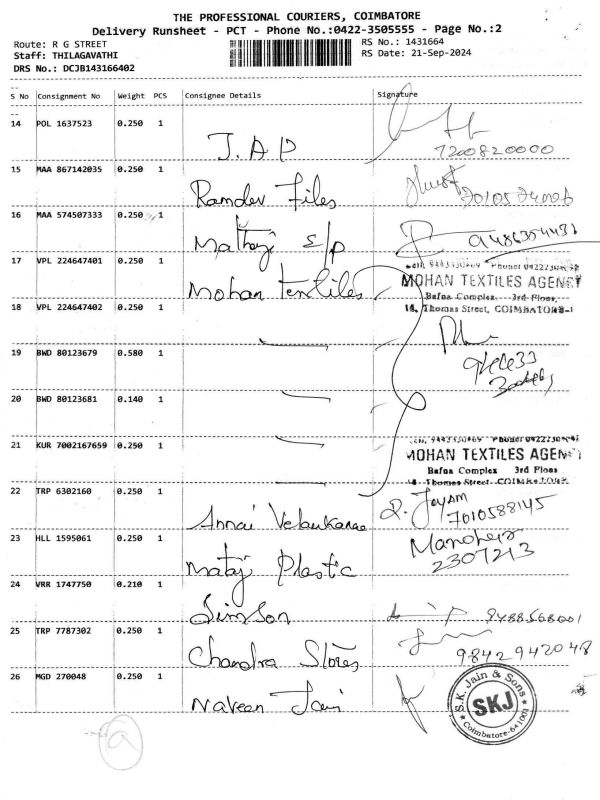 THE PROFESSIONAL COURIERS, COIMBATORE
Delivery Runsheet - PCT - Phone No.:0422-3505555 - Page No.:2
Route: R G STREET
RS No.: 1431664
Staff: THILAGAVATHI
RS Date: 21-Sep-2024
DRS No.: DCJB143166402
S No Consignment No Weight PCS Consignee Details Signature
14 POL 1637523 0.250 1
J.A.P 7200820000
15 MAA 867142035 0.250 1
Ramdev Files
16 MAA 574507333 0.250 1
Mathaji s/p
17 VPL 224647401 0.250 1
Mohan textiles
MOHAN TEXTILES AGENCY
Bafna Complex 3rd Floor,
18, Thomas Street, COIMBATORE-1
18 VPL 224647402 0.250 1
19 BWD 80123679 0.580 1
20 BWD 80123681 0.140 1
21 KUR 7002167659 0.250 1
MOHAN TEXTILES AGENCY
Bafna Complex 3rd Floor
Thomas Street, COIMBATORE
22 TRP 6302160 0.250 1
R. Jayam
Annai Velankanae 7010588145
23 HLL 1595061 0.250 1
Mataji Plastic 2307213
24 VRR 1747750 0.210 1
Simson 9488568001
25 TRP 7787302 0.250 1
Chandra Stores 9842942048
26 MGD 270048 0.250 1
Naveen Jain
S.K. Jain & Sons
SKJ
Coimbatore-641001
a